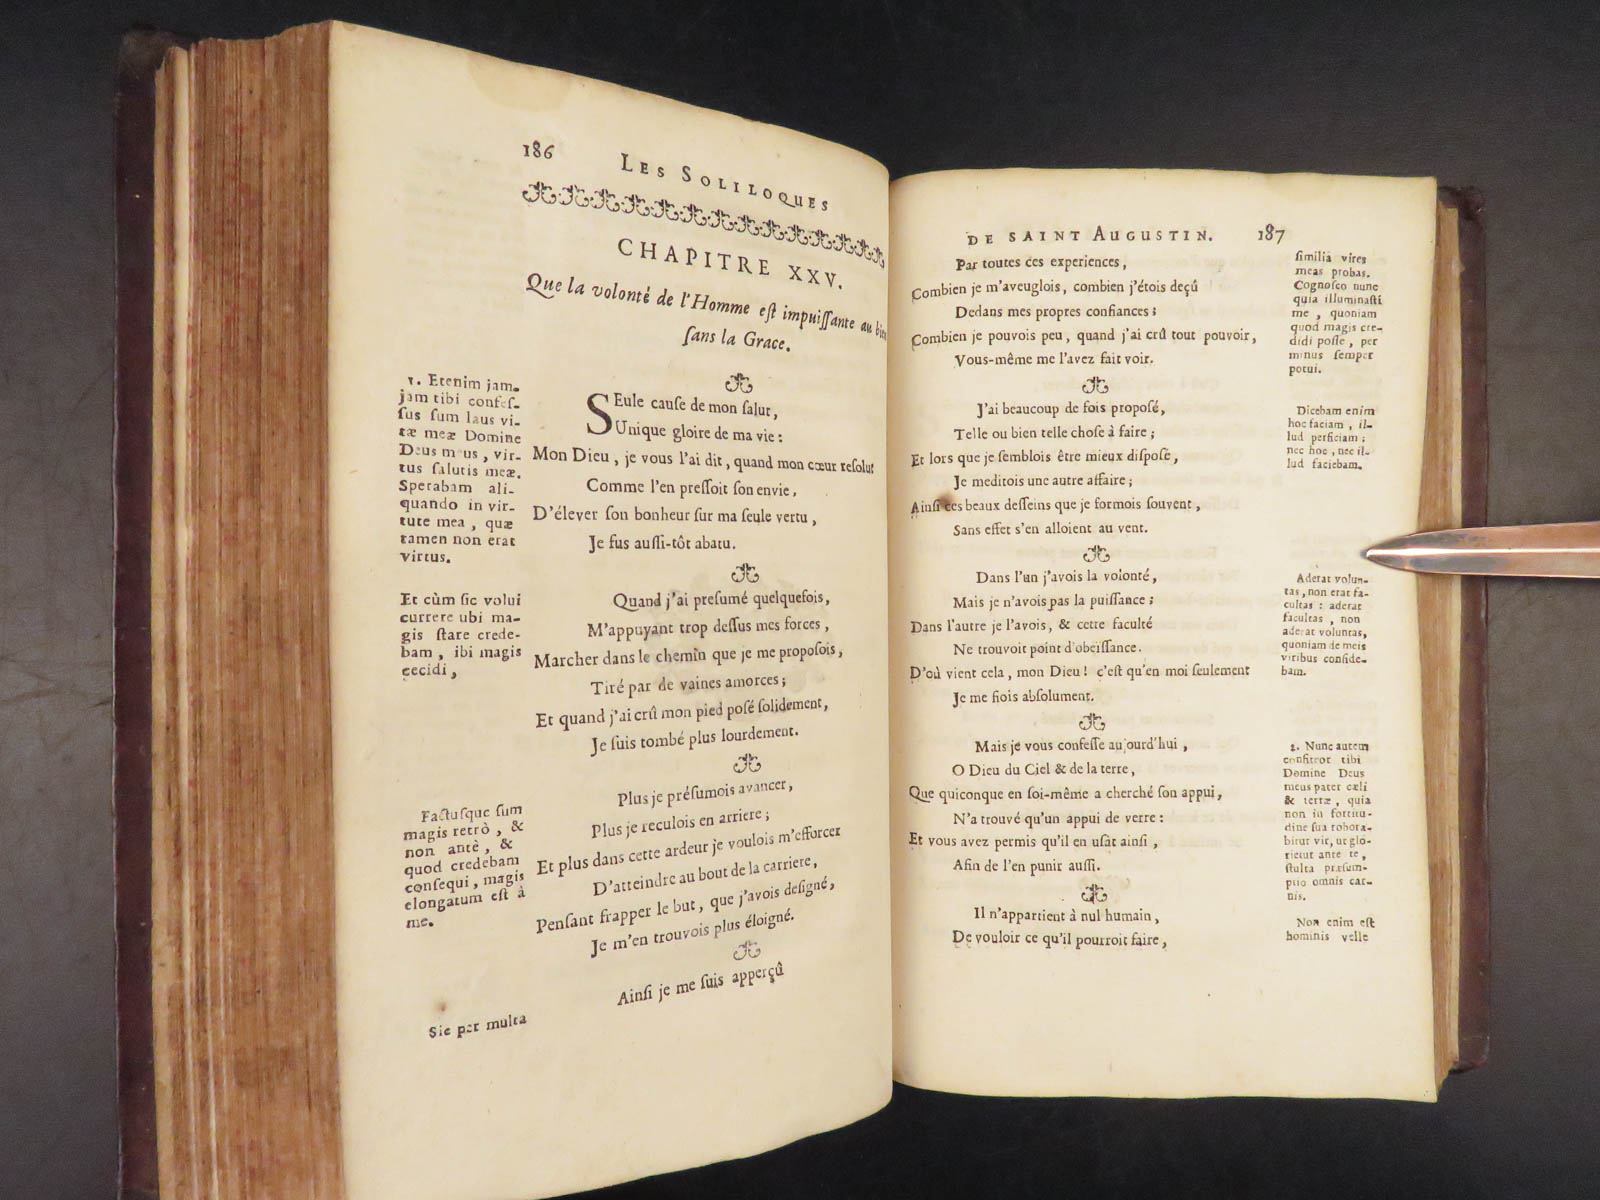 186 LES SOLILOQUES
CHAPITRE XXV.
Que la volonté de l'Homme est impuissante au bien
sans la Grace.
1. Etenim jam-
jam tibi confes-
sus sum laus vi-
tæ meæ Domine
Deus meus, vir-
tus salutis meæ.
Sperabam ali-
quando in vir-
tute mea, quæ
tamen non erat
virtus.
SEule cause de mon salut,
Unique gloire de ma vie :
Mon Dieu, je vous l'ai dit, quand mon cœur resolut
Comme l'en pressoit son envie,
D'élever son bonheur sur ma seule vertu,
Je fus aussi-tôt abatu.
Et cùm sic volui
currere ubi ma-
gis stare crede-
bam, ibi magis
cecidi,
Quand j'ai presumé quelquefois,
M'appuyant trop dessus mes forces,
Marcher dans le chemin que je me proposois,
Tiré par de vaines amorces;
Et quand j'ai crû mon pied posé solidement,
Je suis tombé plus lourdement.
Factusque sum
magis retrò, &
non antè, &
quod credebam
consequi, magis
elongatum est à
me.
Plus je présumois avancer,
Plus je reculois en arriere;
Et plus dans cette ardeur je voulois m'efforcer
D'atteindre au bout de la carriere,
Pensant frapper le but, que j'avois designé,
Je m'en trouvois plus éloigné.
Sic per multa
Ainsi je me suis apperçû
DE SAINT AUGUSTIN. 187
Par toutes ces experiences,
Combien je m'aveuglois, combien j'étois deçû
Dedans mes propres confiances;
Combien je pouvois peu, quand j'ai crû tout pouvoir,
Vous-même me l'avez fait voir.
similia vires
meas probas.
Cognosco nunc
quia illuminasti
me, quoniam
quod magis cre-
didi posse, per
minus semper
potui.
J'ai beaucoup de fois proposé,
Telle ou bien telle chose à faire;
Et lors que je semblois être mieux disposé,
Je meditois une autre affaire;
Ainsi ces beaux desseins que je formois souvent,
Sans effet s'en alloient au vent.
Dicebam enim
hoc faciam, il-
lud perficiam;
nec hoc, nec il-
lud faciebam.
Dans l'un j'avois la volonté,
Mais je n'avois pas la puissance;
Dans l'autre je l'avois, & cette faculté
Ne trouvoit point d'obeïssance.
D'où vient cela, mon Dieu! c'est qu'en moi seulement
Je me fiois absolument.
Aderat volun-
tas, non erat fa-
cultas : aderat
facultas, non
aderat voluntas,
quoniam de meis
viribus confide-
bam.
Mais je vous confesse aujourd'hui,
O Dieu du Ciel & de la terre,
Que quiconque en soi-même a cherché son appui,
N'a trouvé qu'un appui de verre :
Et vous avez permis qu'il en usât ainsi,
Afin de l'en punir aussi.
2. Nunc autem
confiteor tibi
Domine Deus
meus pater cæli
& terræ, quia
non in fortitu-
dine sua robora-
bitur vir, ut glo-
rietur ante te,
stulta præsum-
ptio omnis car-
nis.
Il n'appartient à nul humain,
De vouloir ce qu'il pourroit faire,
Non enim est
hominis velle